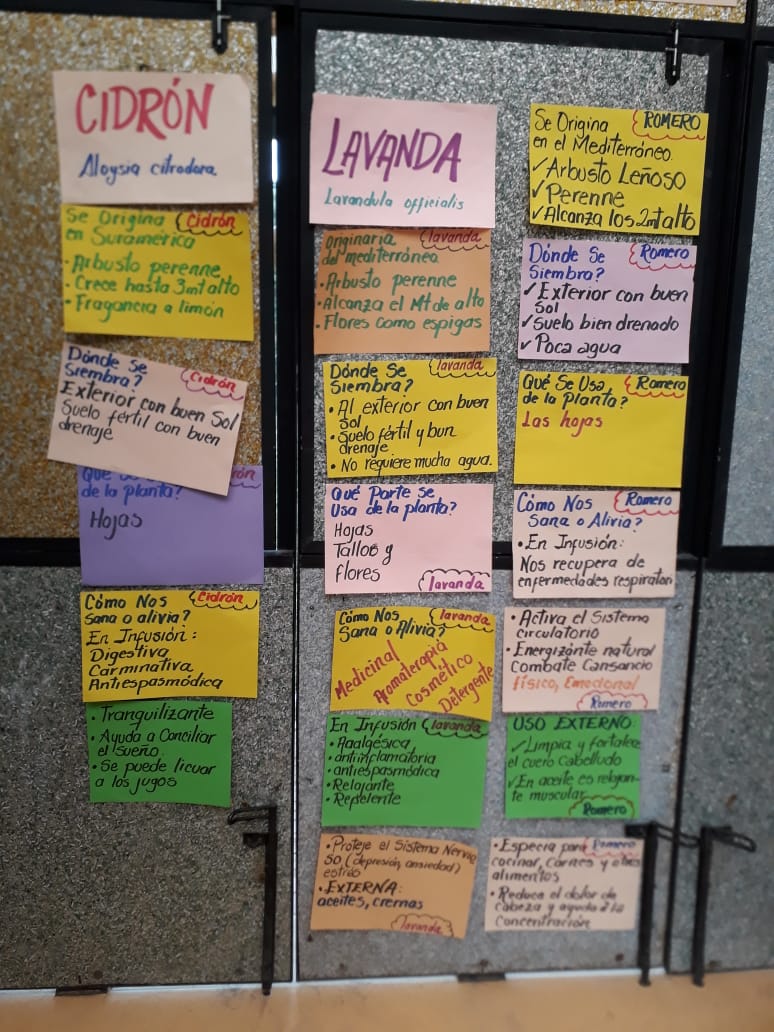 CIDRÓN
Aloysia citrodora
Se Origina
Cidrón
en Suramérica
• Arbusto perenne
• Crece hasta 3mt alto
• Fragancia a limón
Dónde Se
Siembra?
Cidrón
Exterior con buen Sol
Suelo fértil con buen
drenaje
Que
de la planta?
Hojas
Cómo Nos
Cidrón
sana o alivia?
En Infusión:
Digestiva
Carminativa
Antiespasmódica
• Tranquilizante
• Ayuda a Conciliar
el sueño.
• Se puede licuar
a los jugos
LAVANDA
Lavandula officialis
originaria
lavanda
del mediterráneo
• Arbusto perenne
• Alcanza el Mt de alto
• Flores como espigas
Dónde Se
lavanda
Siembra?
• Al exterior con buen
Sol
• Suelo fértil y bun
drenaje
• No requiere mucha agua.
Qué Parte Se
Usa de la planta?
Hojas
Tallos y
flores
lavanda
Cómo Nos
lavanda
Sana o Alivia?
Medicinal
Aromaterapia
Cosmético
Detergente
En Infusión
lavanda
• Analgésica
• antiinflamatoria
• antiespasmódica
• Relajante
• Repelente
• Proteje el Sistema Nervio
so (depresión, ansiedad)
estrés
• EXTERNA:
aceites, cremas
lavanda
Se Origina
ROMERO
en el Mediterráneo.
✓ Arbusto Leñoso
✓ Perenne
✓ Alcanza los 2mt alto
Dónde Se
Romero
Siembra?
✓ Exterior con buen
Sol
✓ Suelo bien drenado
✓ Poca agua
Qué Se Usa
Romero
de la Planta?
Las hojas
Cómo Nos
Romero
Sana o Alivia?
• En Infusión:
Nos recupera de
enfermedades respiratori
• Activa el Sistema
circulatorio
• Energizante natural
Combate Cansancio
físico, Emocional
Romero
USO EXTERNO
✓ Limpia y fortalece
el cuero Cabelludo
✓ En aceite es relajan-
te muscular.
Romero
• Especia para
Romero
cocinar, carnes y otros
alimentos
• Reduce el dolor de
Cabeza y ayuda a la
Concentración